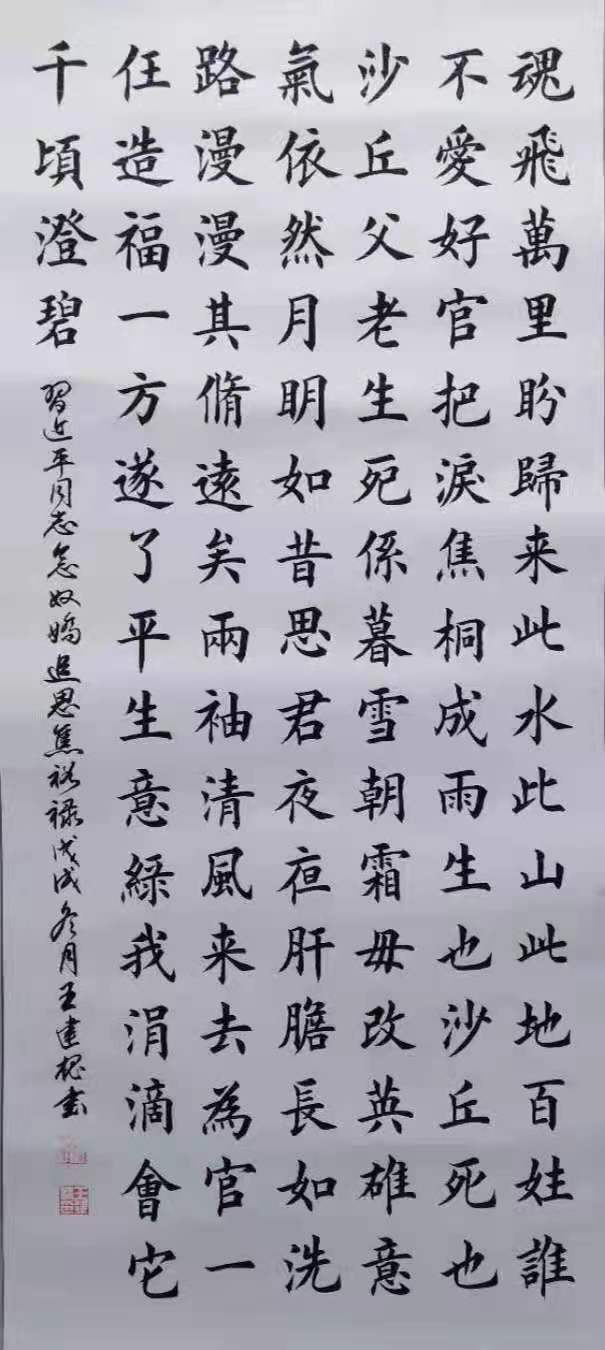 魂飛萬里盼歸来此水此山此地百姓誰
不愛好官把淚焦桐成雨生也沙丘死也
沙丘父老生死係暮雪朝霜毋改英雄意
氣依然月明如昔思君夜夜肝膽長如洗
路漫漫其脩遠矣兩袖清風来去為官一
任造福一方遂了平生意綠我涓滴會它
千頃澄碧
習近平同志念奴嬌追思焦裕祿戊戌冬月王建書